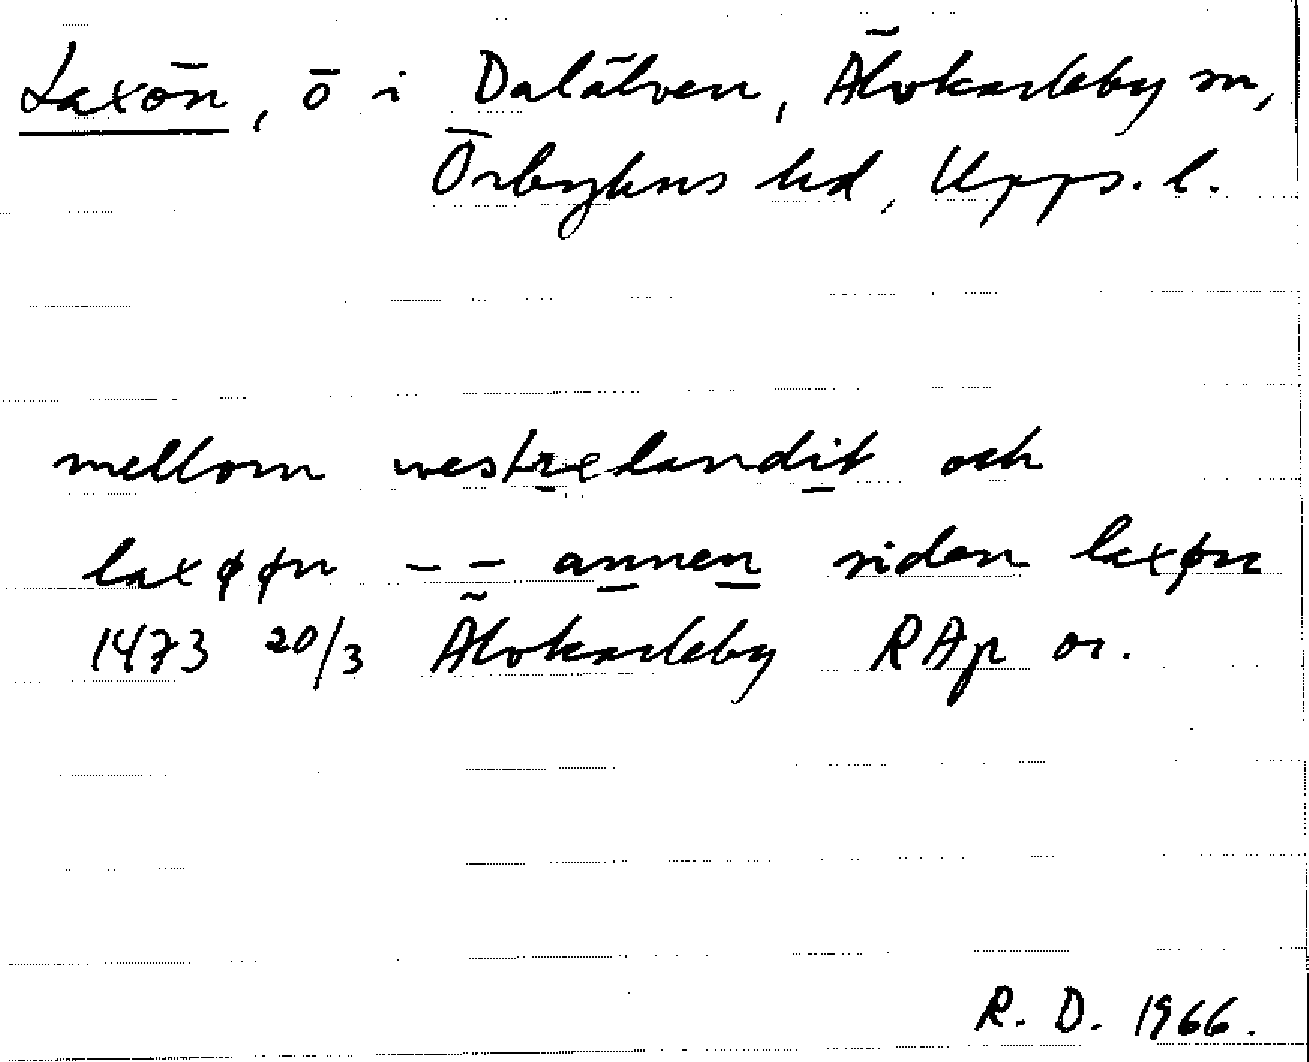 Laxön, ö i Dalälven, Älvkarleby sn,
Örbyhus hd, Upps. l.
mellom westrelandit och
laxøøn - - annen siden laxøn
1473 20/3 Älvkarleby RAp or.
R. D. 1966.